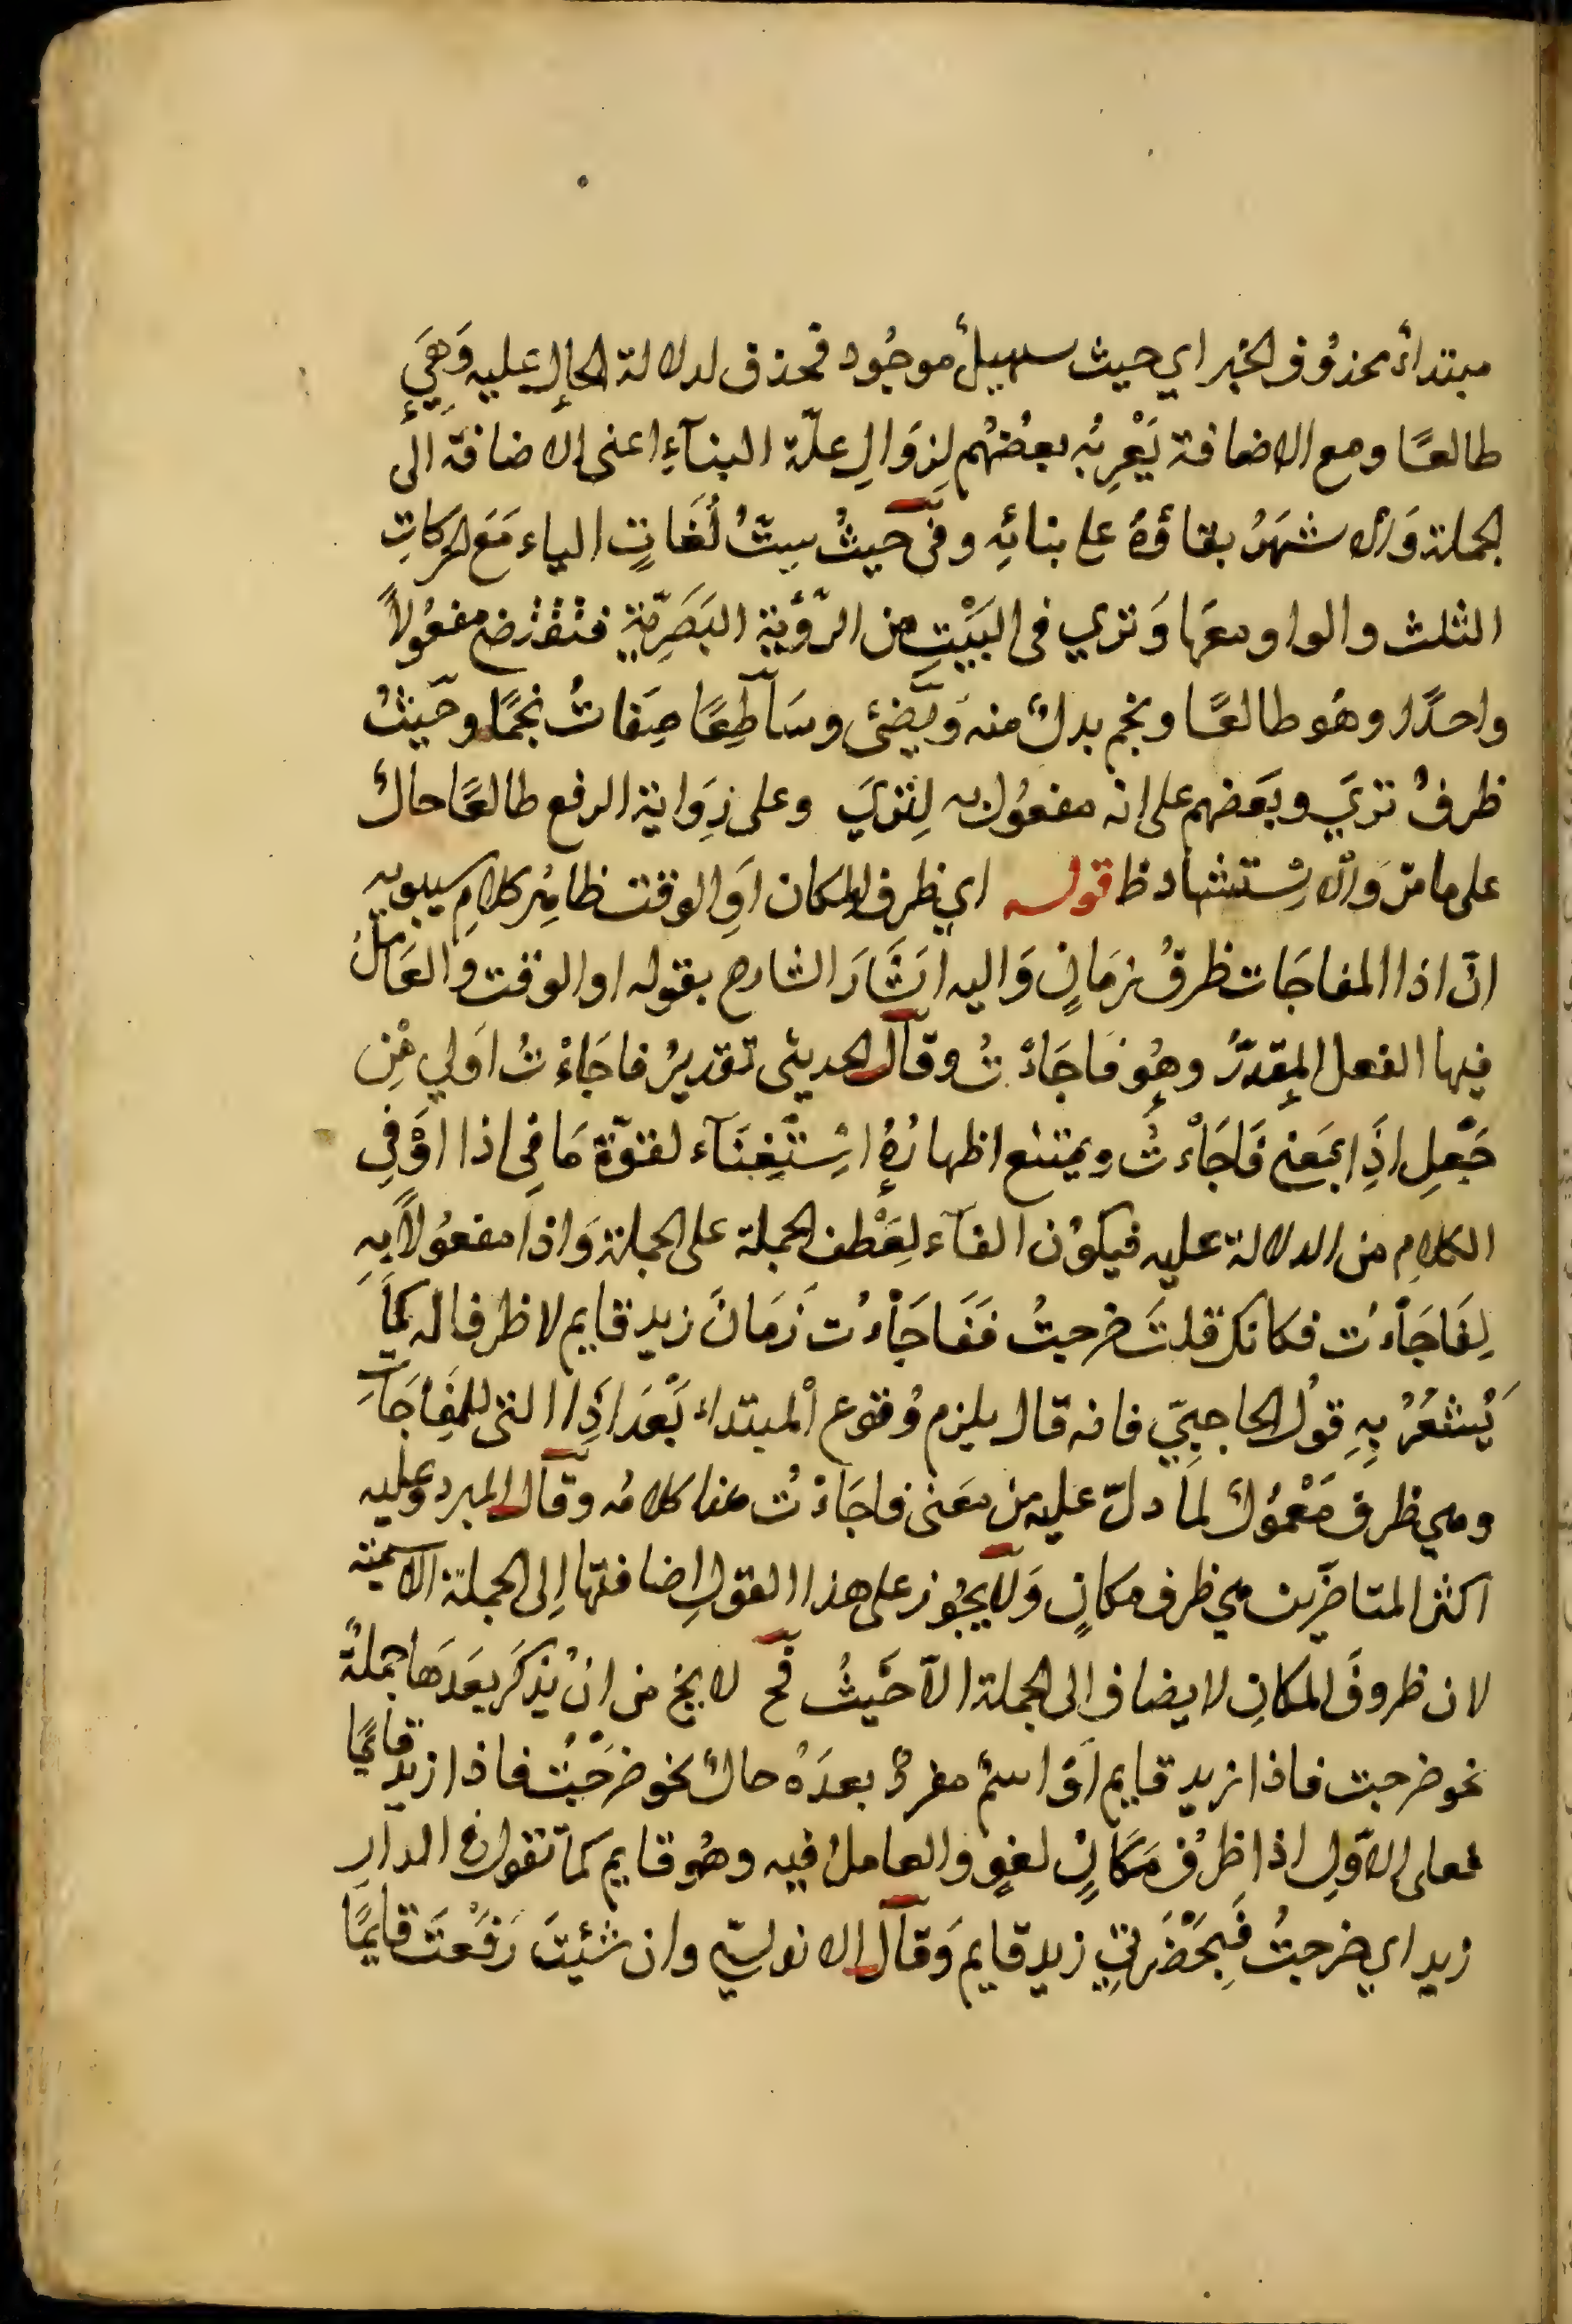 مبتداءٌ محذوُف الخبر اي حيث سهيلٌ موجُود فحذف لدلالة الحال عليه وَهِيَ
طالعًا ومع الاضافة يَعْرِبُه بعضُهُم لِزوَالِ علّة البنآءِ اعنى الاضافة الى
الجملة وَالاشهَرُ بقاؤهُ على بنائِه وفى حَيثُ ستُّ لُغَاتٍ الياء مَعَ الحركاتِ
الثلث والواو معَها وَترَي فى البَيْتِ من الرّؤيَةِ البَصَرِيّةِ فتقتضى مفعُولاً
واحدًا وهُو طالعًا ونجم بدلٌ منه وَيُضئ وسَاطِعًا صِفاتُ نجمًا وحَيثُ
ظرفُ ترَيَ وبعَضهم على انه مفعُول به لِترَيَ وعلى رِوَاية الرفع طالعًا حالٌ
على ما مرّ وَالاِستشهاد ظ قوله اي ظرف المكان اوِ الوقت ظاهِر كلامِ سيبويه
انّ اذا المفاجَات ظرفُ زمَانٍ وَاليه اشَارَ الشارح بقوله او الوقت والعَاملُ
فيها الفعل المقدّرُ وهُو فَاجَاءْتُ وقال الحديثى تقديرُ فاجَاءْتُ اَولي مِن
جَعْلِ اذَا بمَعنى فَاجَاءْتُ ويمتنع اظهارُهُ اسْتِغنَآء لقوّة مَا في اذا اوَ في
الكلامِ من الدلالة عليه فيكوُن الفآء لِعَطْف الجملة على الجملة وَاذا مفعُولاً بِهِ
لِفَاجَاْءُت فكانك قلتَ خرجتُ ففَاجَاْءُت زمَانَ زيد قايم لا ظرفا له كمَا
يُشعُرُ بِهِ قولُ الحاجبيّ فانه قال يلزم وُقوع المبتداء بَعْدَ اذِا التى للمفاجَآتِ
وهي ظرف مَعْموُلٌ لما دلّ عليه من معَنى فاجَاءْتُ هذا كلامُه وقال المبرد وعليه
اكثر المتاخّرين هي ظرف مكانٍ وَلايجُوز على هذا القولِ اضافتها اِلى الجملة الاسميّة
لان ظروفَ المكانِ لا يضاف الى الجملة الاّ حَيثُ فح لا يخ من انْ يذكرَ بعَدَهَا جملةٌ
نحو خرجت فاذا زيد قايم اوَ اسمٌ مفردٌ بعدَهُ حالٌ نحو خرَجْتُ فاذا زيد قايمًا
فعلى الاوّلِ اذا ظرفُ مَكَانٍ لغوٍ والعاملُ فيه وهُو قايم كما تقول فى الدار
زيد اي خرجتُ فبِحَضْرَتِي زيد قايم وَقال الاندلسيّ وان شئتَ رَفَعْتَ قايمًا